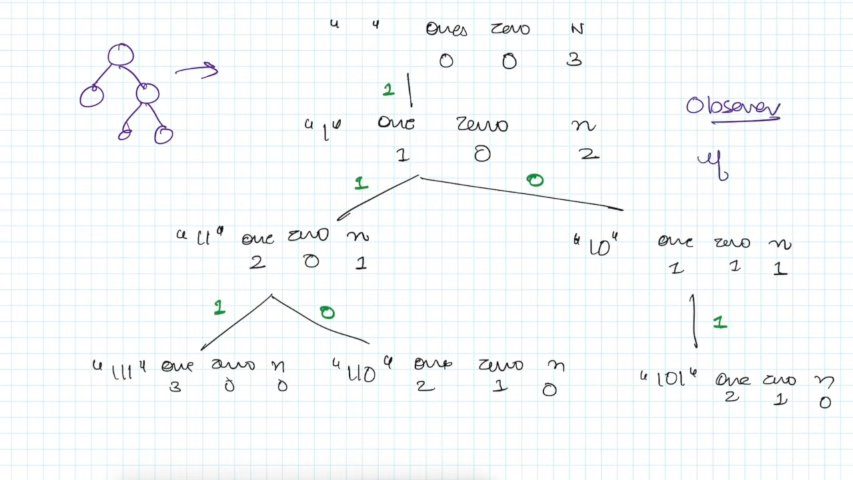 " " ones zero N
0 0 3
1
Observer
"1" one zero n
1 0 2
if
1 0
"11" one zero n
2 0 1
"10" one zero n
1 1 1
1 0
1
"111" one zero n
3 0 0
"110" one zero n
2 1 0
"101" one zero n
2 1 0